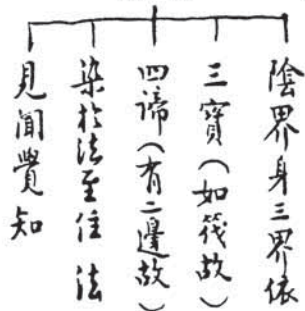 陰界身三界依
三寶(如筏故)
四諦(有二邊故)
染於法至住法
見聞覺知